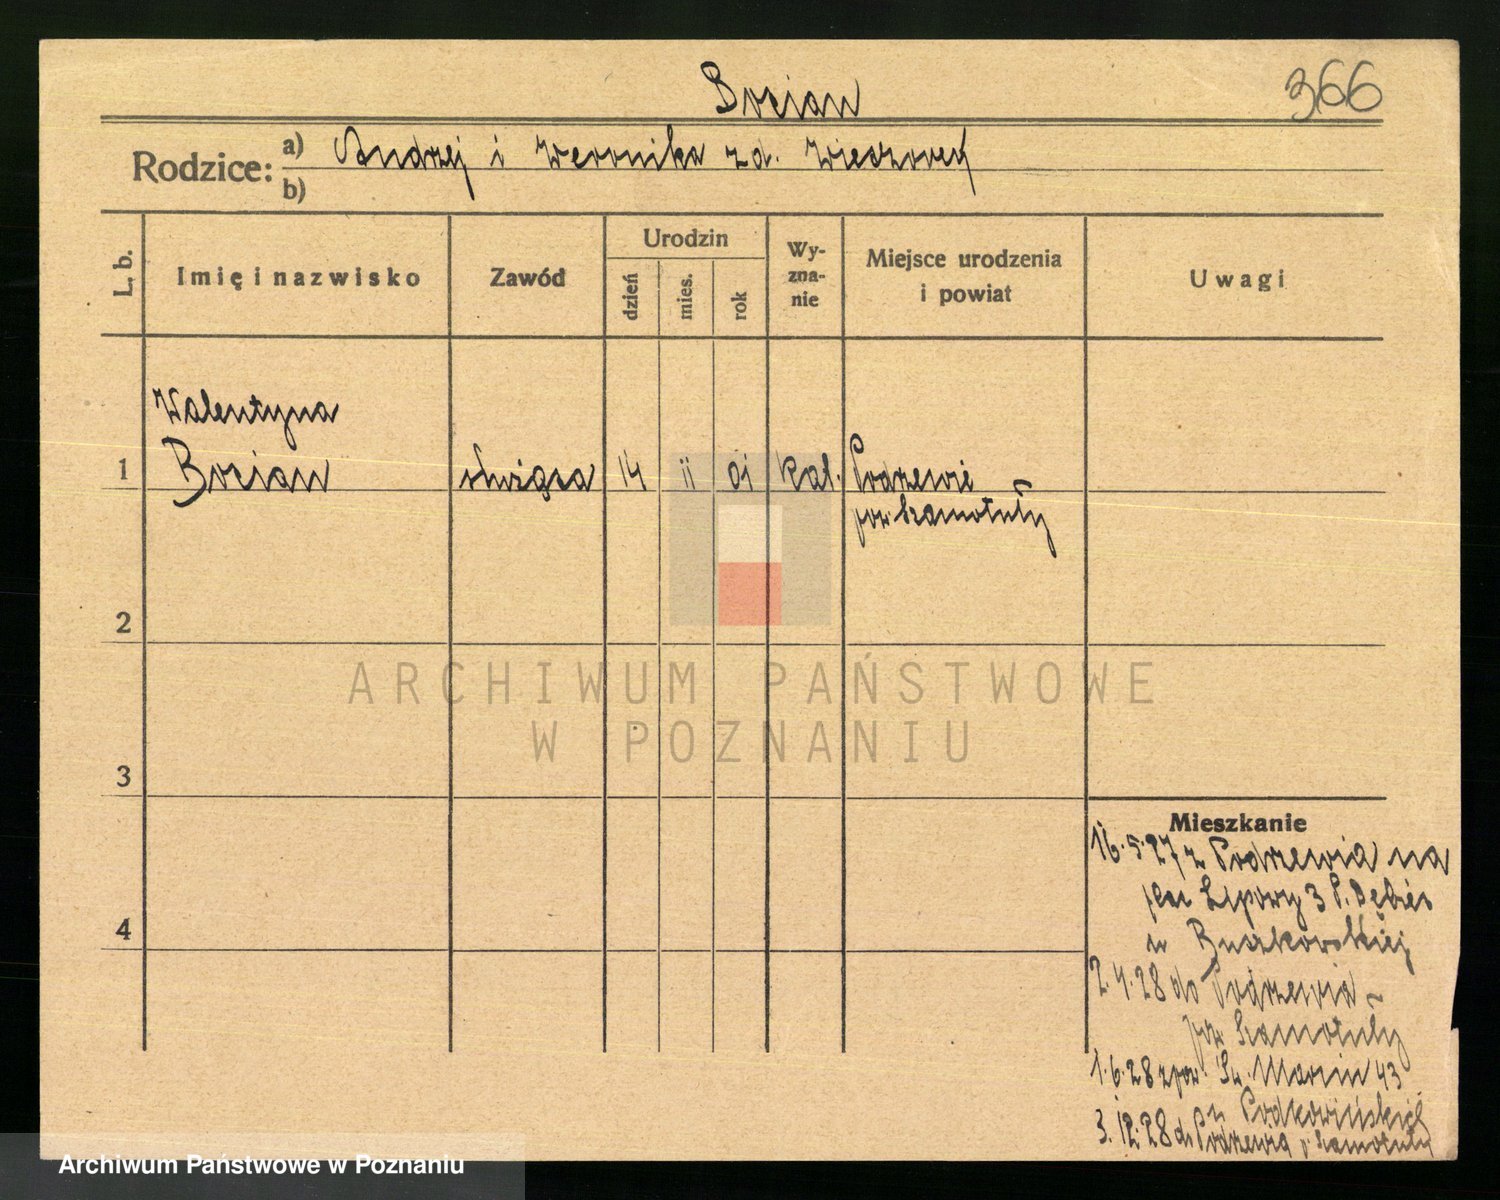 Bocian
366
Rodzice: a) Andrzej i Weronika zd. Wieczorek
b)
L. b.
Imię i nazwisko
Zawód
Urodzin
dzień
mies.
rok
Wy-
zna-
nie
Miejsce urodzenia
i powiat
Uwagi
Walentyna
1 Bocian służąca 14 ii 01 kat. Podrzewie
pow. Szamotuły
2
3
4
Mieszkanie
16.5.27 z Podrzewia na
plac Lipowy 3 P. Dębiec
u Buszkowskiej
2.4.28 do Podrzewia
pow Szamotuły
1.6.28 z pow. Św. Marcin 43
u Podkowińskiej
3.12.28 do Podrzewia p. Szamotuły
ARCHIWUM PAŃSTWOWE
W POZNANIU
Archiwum Państwowe w Poznaniu